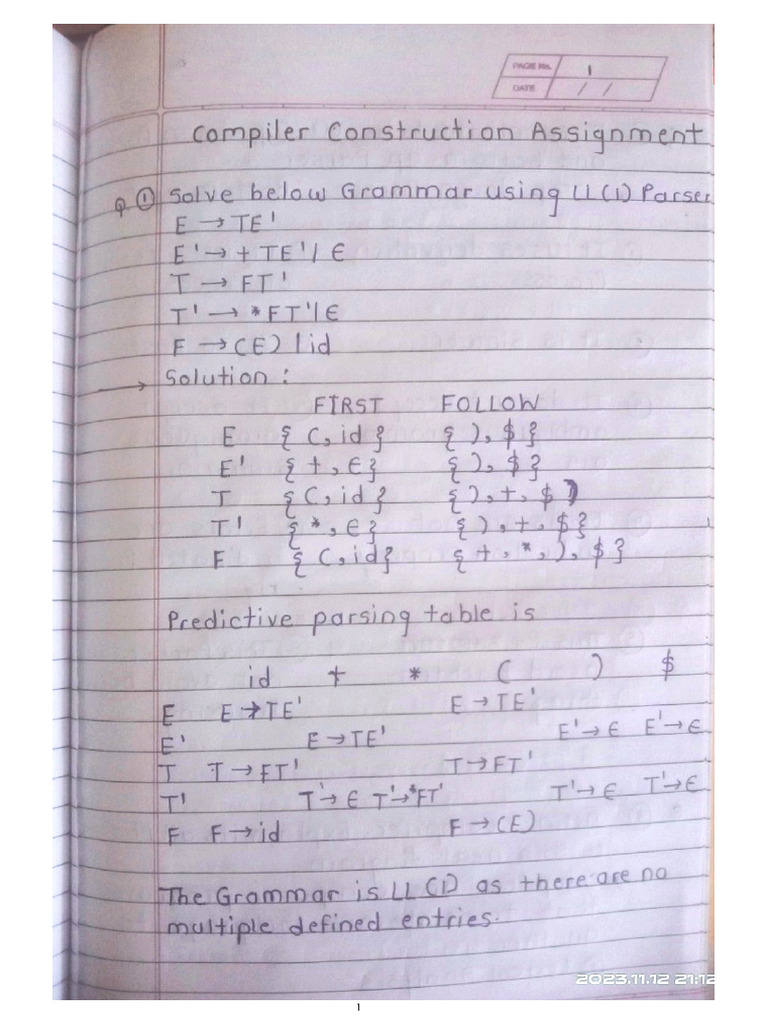 PAGE No. 1
DATE / /
Compiler Construction Assignment
Q ① Solve below Grammar using LL(1) Parser
E → TE'
E' → + TE' / ∈
T → FT'
T' → *FT' | ∈
F → (E) | id
→ Solution :
FIRST FOLLOW
E { (, id } { ), $ }
E' { +, ∈ } { ), $ }
T { (, id } { ), +, $ )
T' { *, ∈ } { ), +, $ }
F { (, id } { +, *, ), $ }
Predictive parsing table is
id + * ( ) $
E E → TE' E → TE'
E' E → TE' E' → ∈ E' → ∈
T T → FT' T → FT'
T' T' → ∈ T' → *FT' T' → ∈ T' → ∈
F F → id F → (E)
The Grammar is LL (1) as there are no
multiple defined entries.
2023.11.12 21:12
1